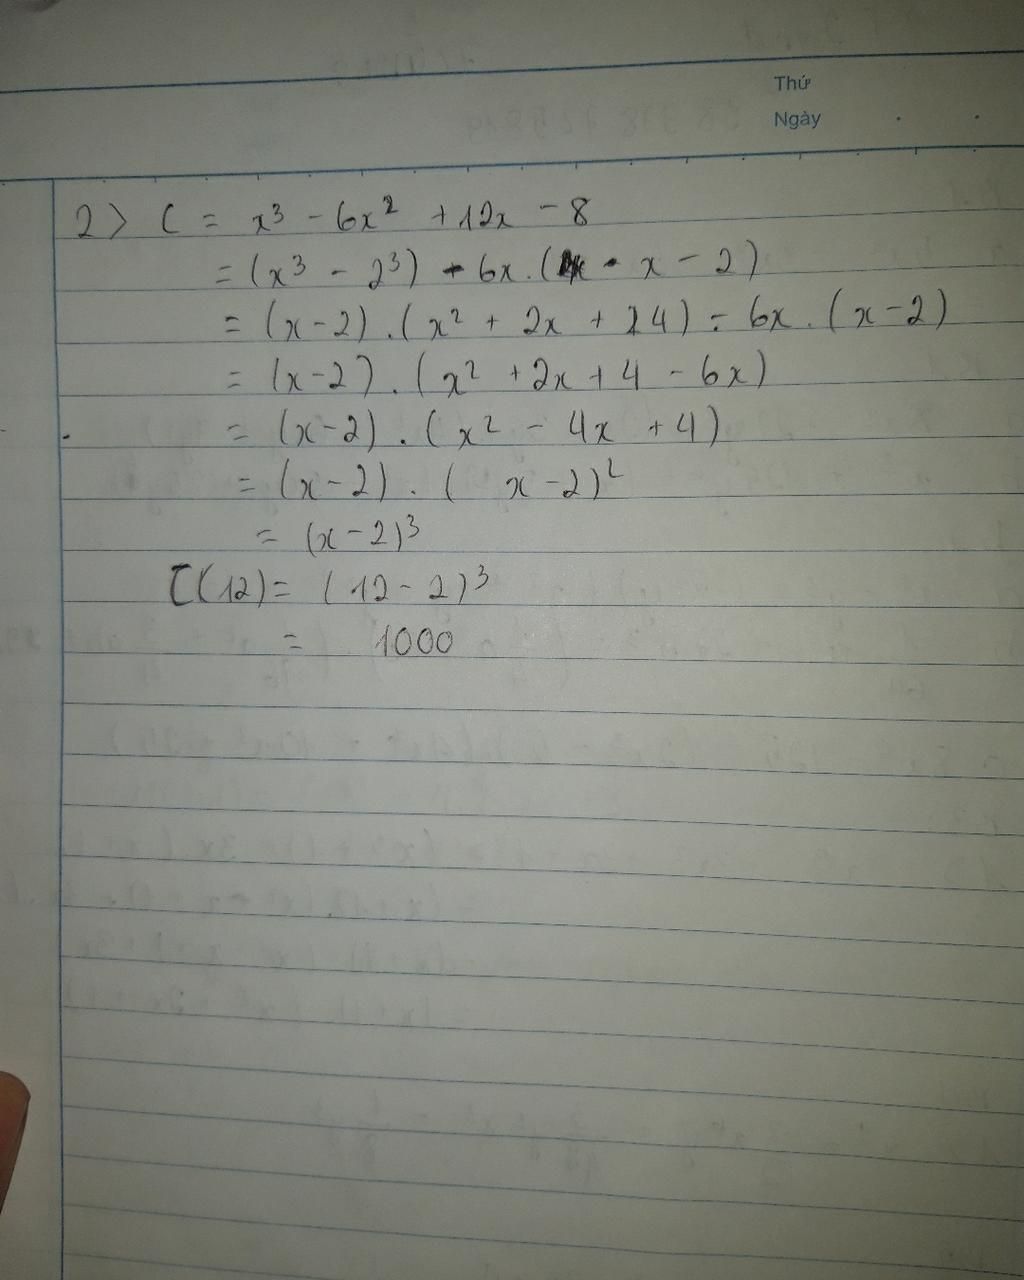 Thứ
Ngày
2) C = x³ - 6x² + 12x - 8
= (x³ - 2³) - 6x.(x - 2)
= (x-2).(x² + 2x + 4) - 6x.(x-2)
= (x-2).(x² + 2x + 4 - 6x)
= (x-2).(x² - 4x + 4)
= (x-2).(x-2)²
= (x-2)³
C(12) = (12-2)³
= 1000